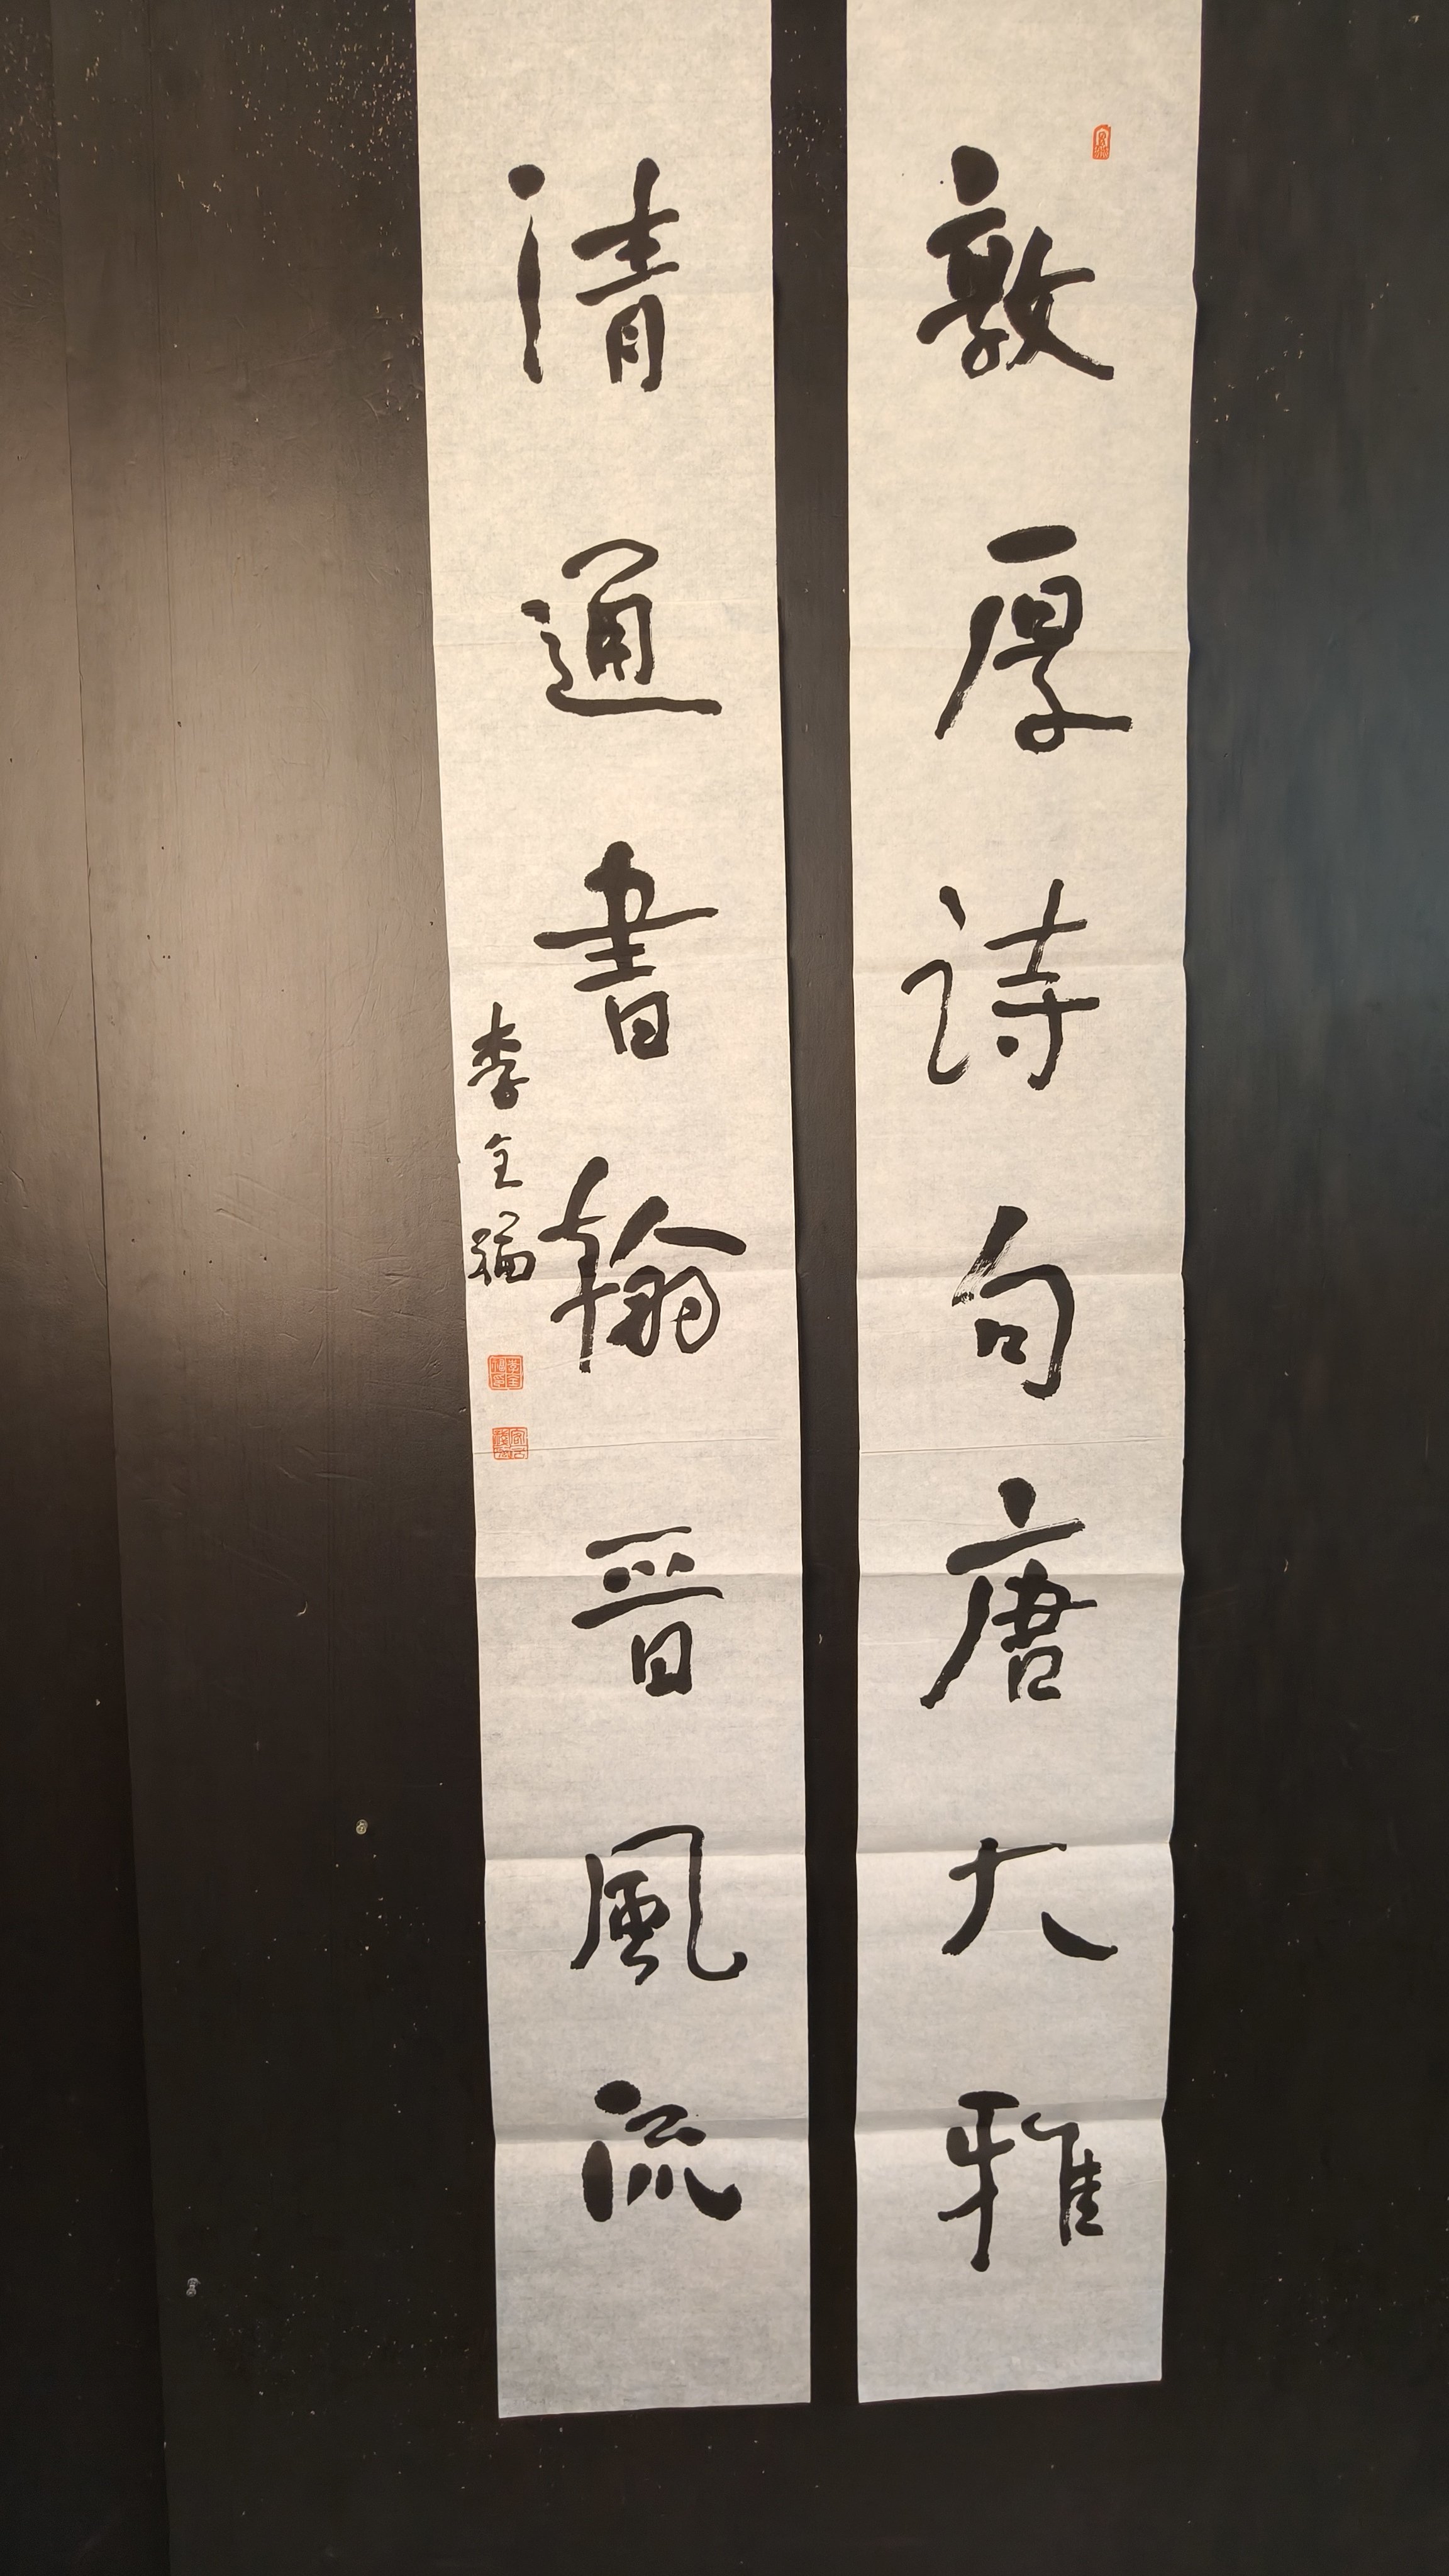 敦厚诗句唐大雅
清通書翰晋風流
李全福